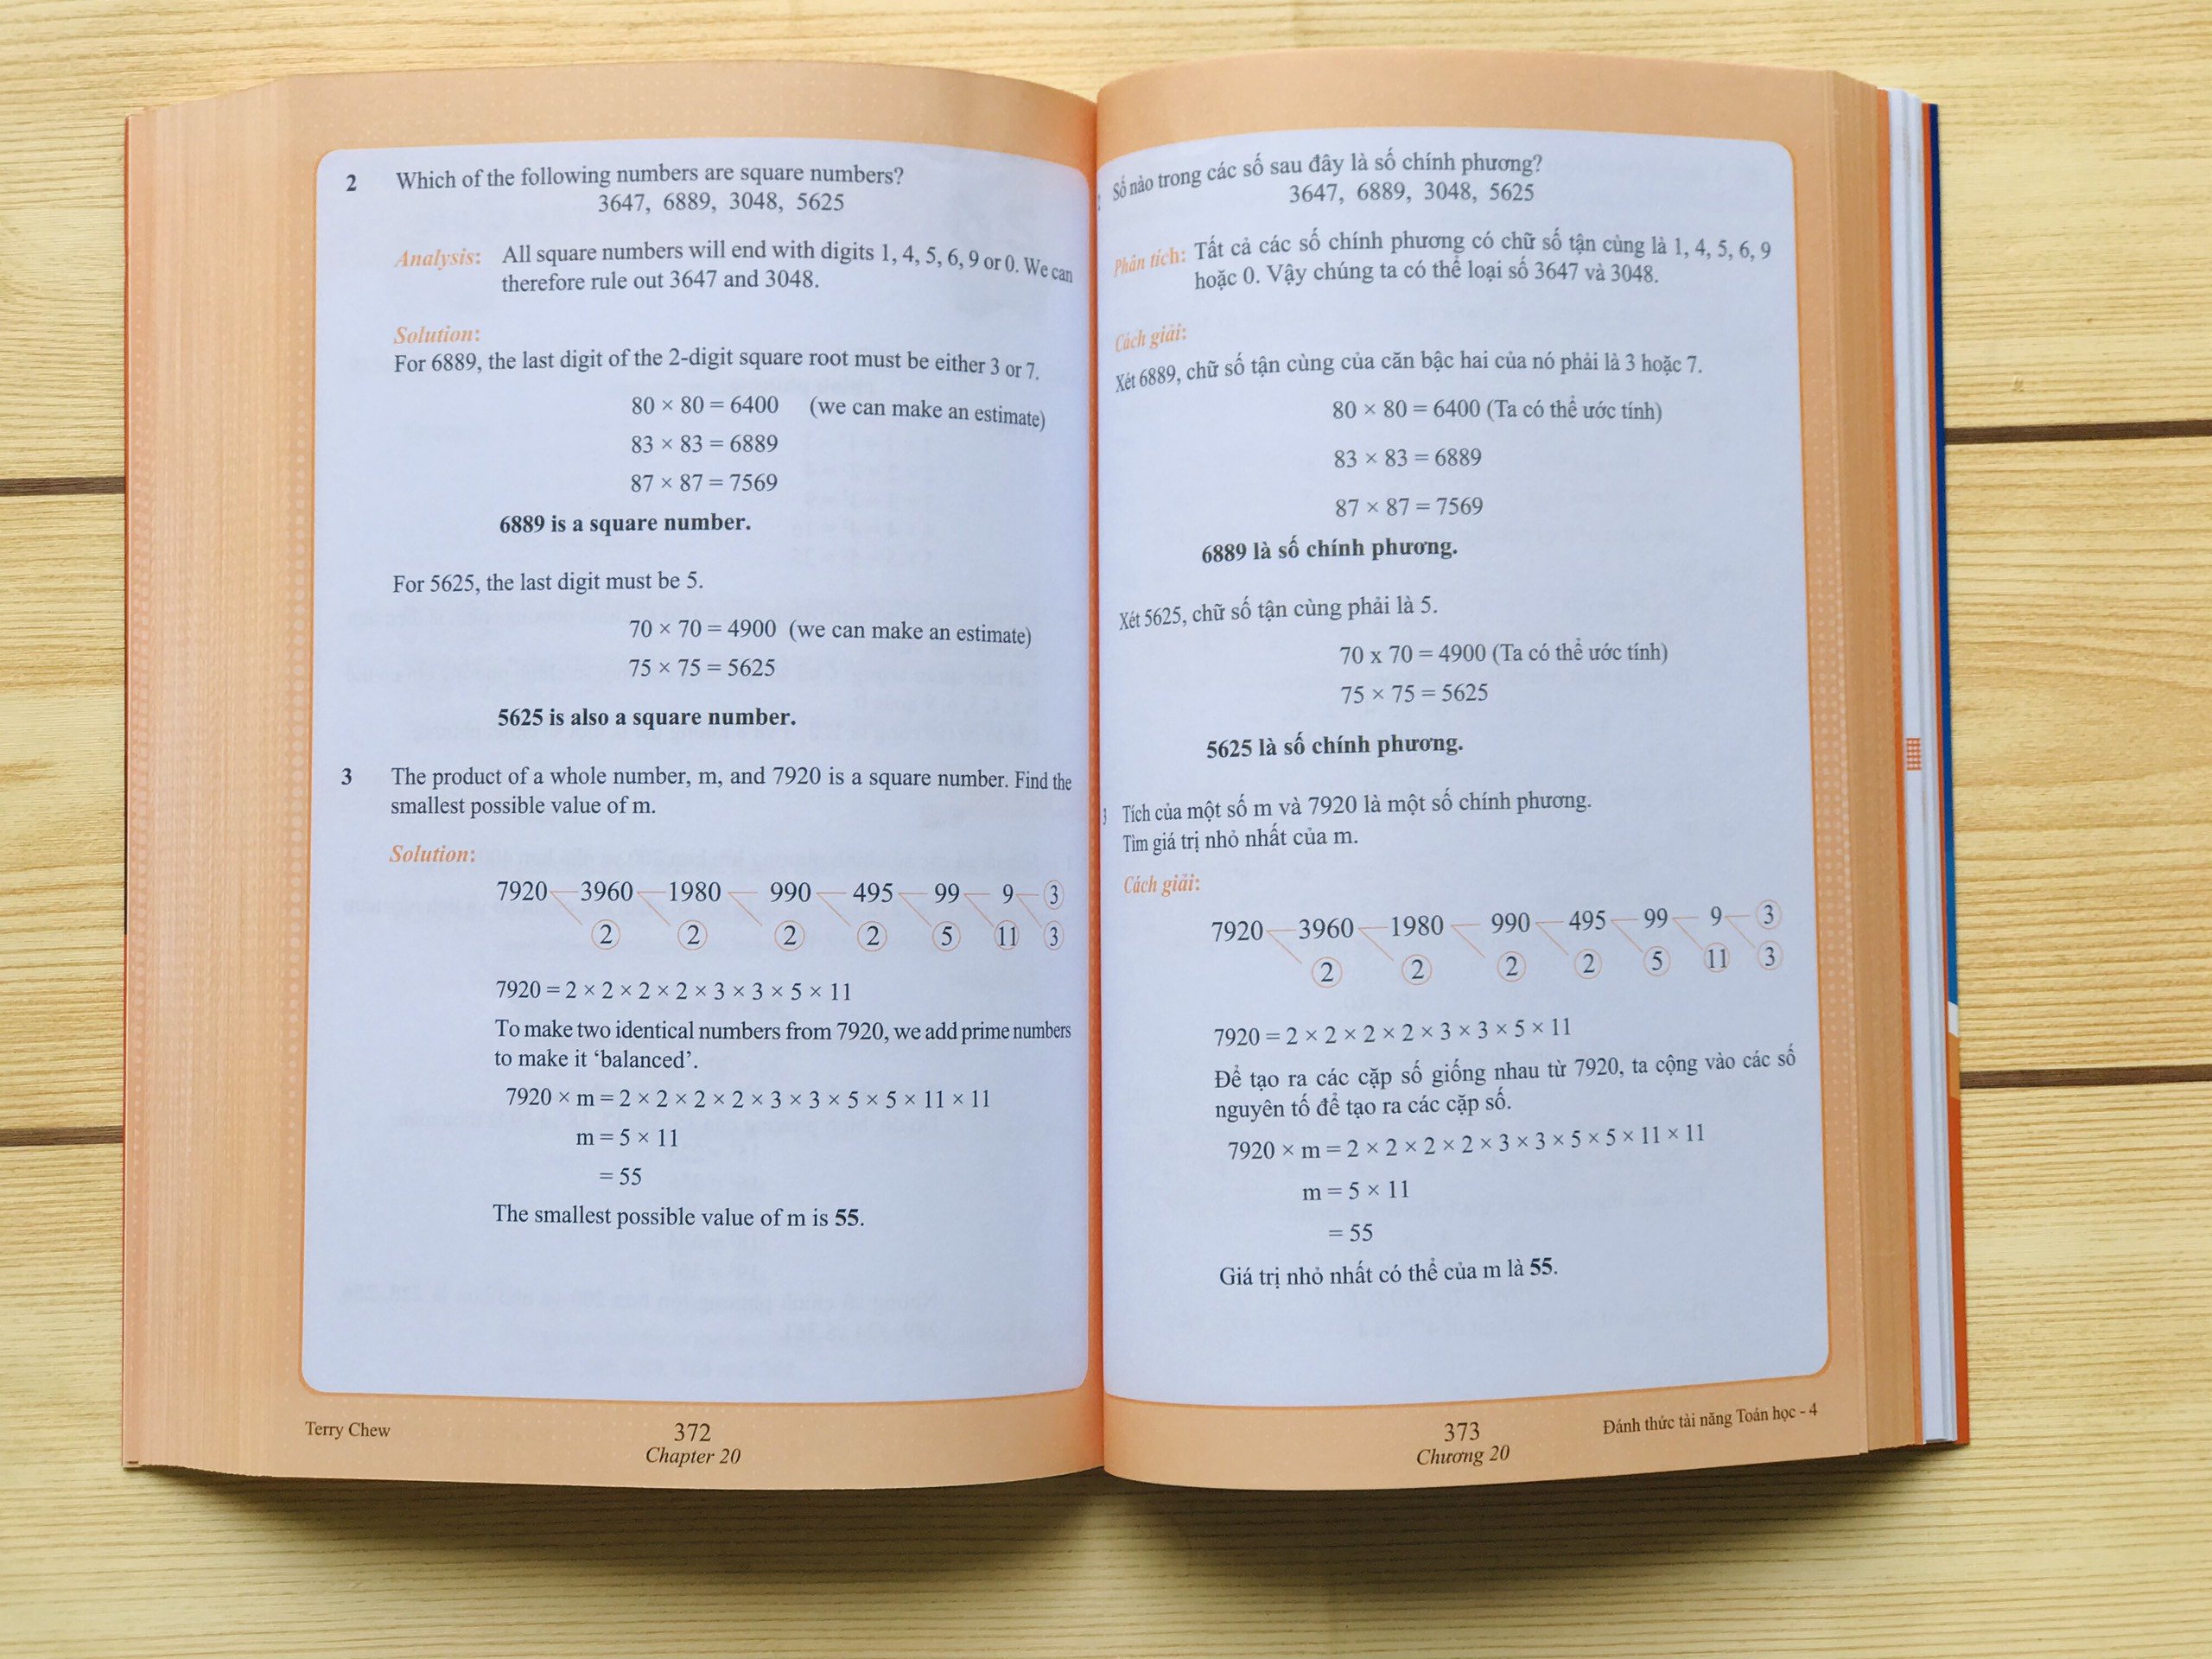 2 Which of the following numbers are square numbers?
3647, 6889, 3048, 5625
Analysis: All square numbers will end with digits 1, 4, 5, 6, 9 or 0. We can
therefore rule out 3647 and 3048.
Solution:
For 6889, the last digit of the 2-digit square root must be either 3 or 7.
80 × 80 = 6400 (we can make an estimate)
83 × 83 = 6889
87 × 87 = 7569
6889 is a square number.
For 5625, the last digit must be 5.
70 × 70 = 4900 (we can make an estimate)
75 × 75 = 5625
5625 is also a square number.
3 The product of a whole number, m, and 7920 is a square number. Find the
smallest possible value of m.
Solution:
7920 3960 1980 990 495 99 9 3
2 2 2 2 5 11 3
7920 = 2 × 2 × 2 × 2 × 3 × 3 × 5 × 11
To make two identical numbers from 7920, we add prime numbers
to make it ‘balanced’.
7920 × m = 2 × 2 × 2 × 2 × 3 × 3 × 5 × 5 × 11 × 11
m = 5 × 11
= 55
The smallest possible value of m is 55.
Terry Chew
372
Chapter 20
Số nào trong các số sau đây là số chính phương?
3647, 6889, 3048, 5625
Phân tích: Tất cả các số chính phương có chữ số tận cùng là 1, 4, 5, 6, 9
hoặc 0. Vậy chúng ta có thể loại số 3647 và 3048.
Cách giải:
Xét 6889, chữ số tận cùng của căn bậc hai của nó phải là 3 hoặc 7.
80 × 80 = 6400 (Ta có thể ước tính)
83 × 83 = 6889
87 × 87 = 7569
6889 là số chính phương.
Xét 5625, chữ số tận cùng phải là 5.
70 x 70 = 4900 (Ta có thể ước tính)
75 × 75 = 5625
5625 là số chính phương.
Tích của một số m và 7920 là một số chính phương.
Tìm giá trị nhỏ nhất của m.
Cách giải:
7920 3960 1980 990 495 99 9 3
2 2 2 2 5 11 3
7920 = 2 × 2 × 2 × 2 × 3 × 3 × 5 × 11
Để tạo ra các cặp số giống nhau từ 7920, ta cộng vào các số
nguyên tố để tạo ra các cặp số.
7920 × m = 2 × 2 × 2 × 2 × 3 × 3 × 5 × 5 × 11 × 11
m = 5 × 11
= 55
Giá trị nhỏ nhất có thể của m là 55.
373
Chương 20
Đánh thức tài năng Toán học - 4